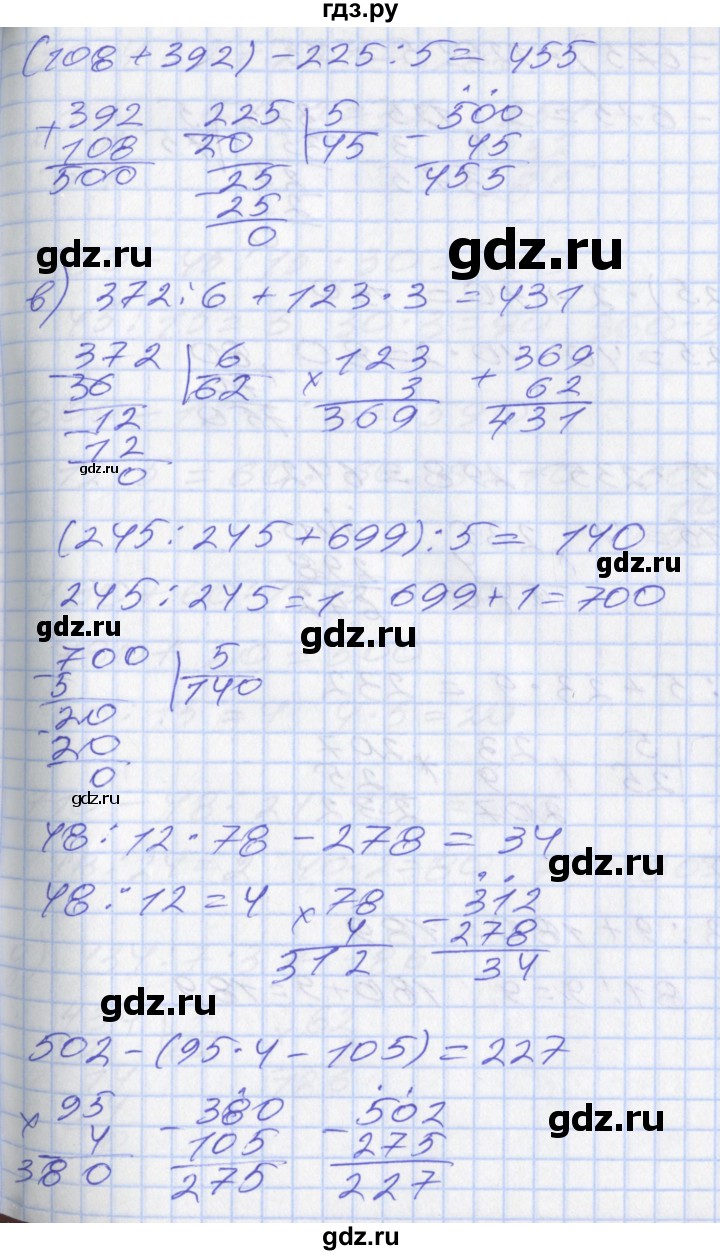 гдз.ру
(108 + 392) - 225 : 5 = 455
+ 392 - 225 | 5 - 500
108 20 | 45 45
500 - 25 455
25
0
gdz.ru gdz.ru
в) 372 : 6 + 123 · 3 = 431
- 372 | 6 × 123 + 369
36 | 62 3 62
- 12 369 431
12
gdz.ru 0
(245 : 245 + 699) : 5 = 140
gdz.ru
245 : 245 = 1 699 + 1 = 700
gdz.ru gdz.ru
- 700 | 5
5 | 140
- 20
20
0
gdz.ru
48 : 12 · 78 - 278 = 34
gdz.ru
48 : 12 = 4 × 78 - 312
4 278
312 34
gdz.ru
502 - (95 · 4 - 105) = 227
× 95 - 380 - 502
gdz.ru
4 105 275
380 275 227
gdz.ru